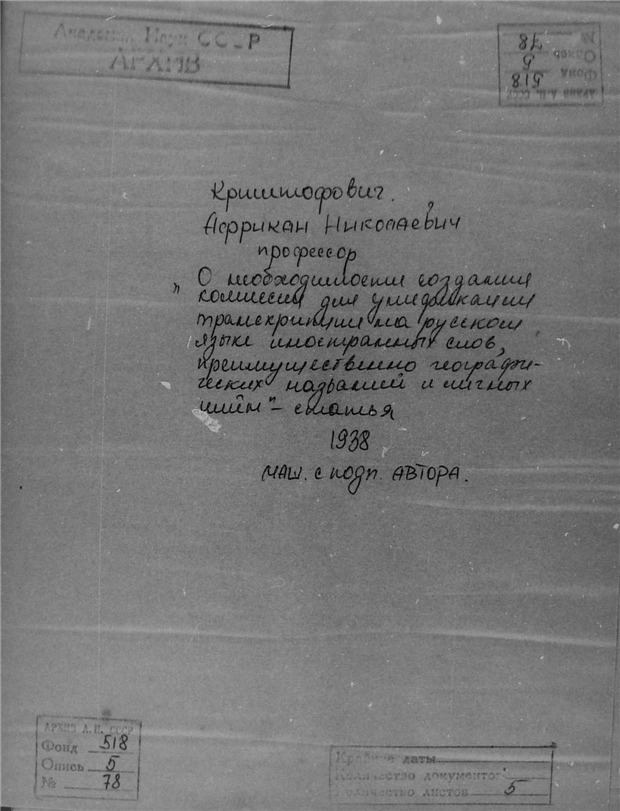 Академия Наук СССР
АРХИВ
АРХИВ А.Н. СССР
Фонд 518
Опись 5
№ 78
Криштофович.
Африкан Николаевич
профессор
"О необходимости создания
комиссии для унификации
транскрипции на русском
языке иностранных слов,
преимущественно географи-
ческих названий и личных
имён" – статья
1938
маш. с подп. АВТОРА.
АРХИВ А.Н. СССР
Фонд 518
Опись 5
№ 78
Крайние даты
Количество документов
Количество листов 5